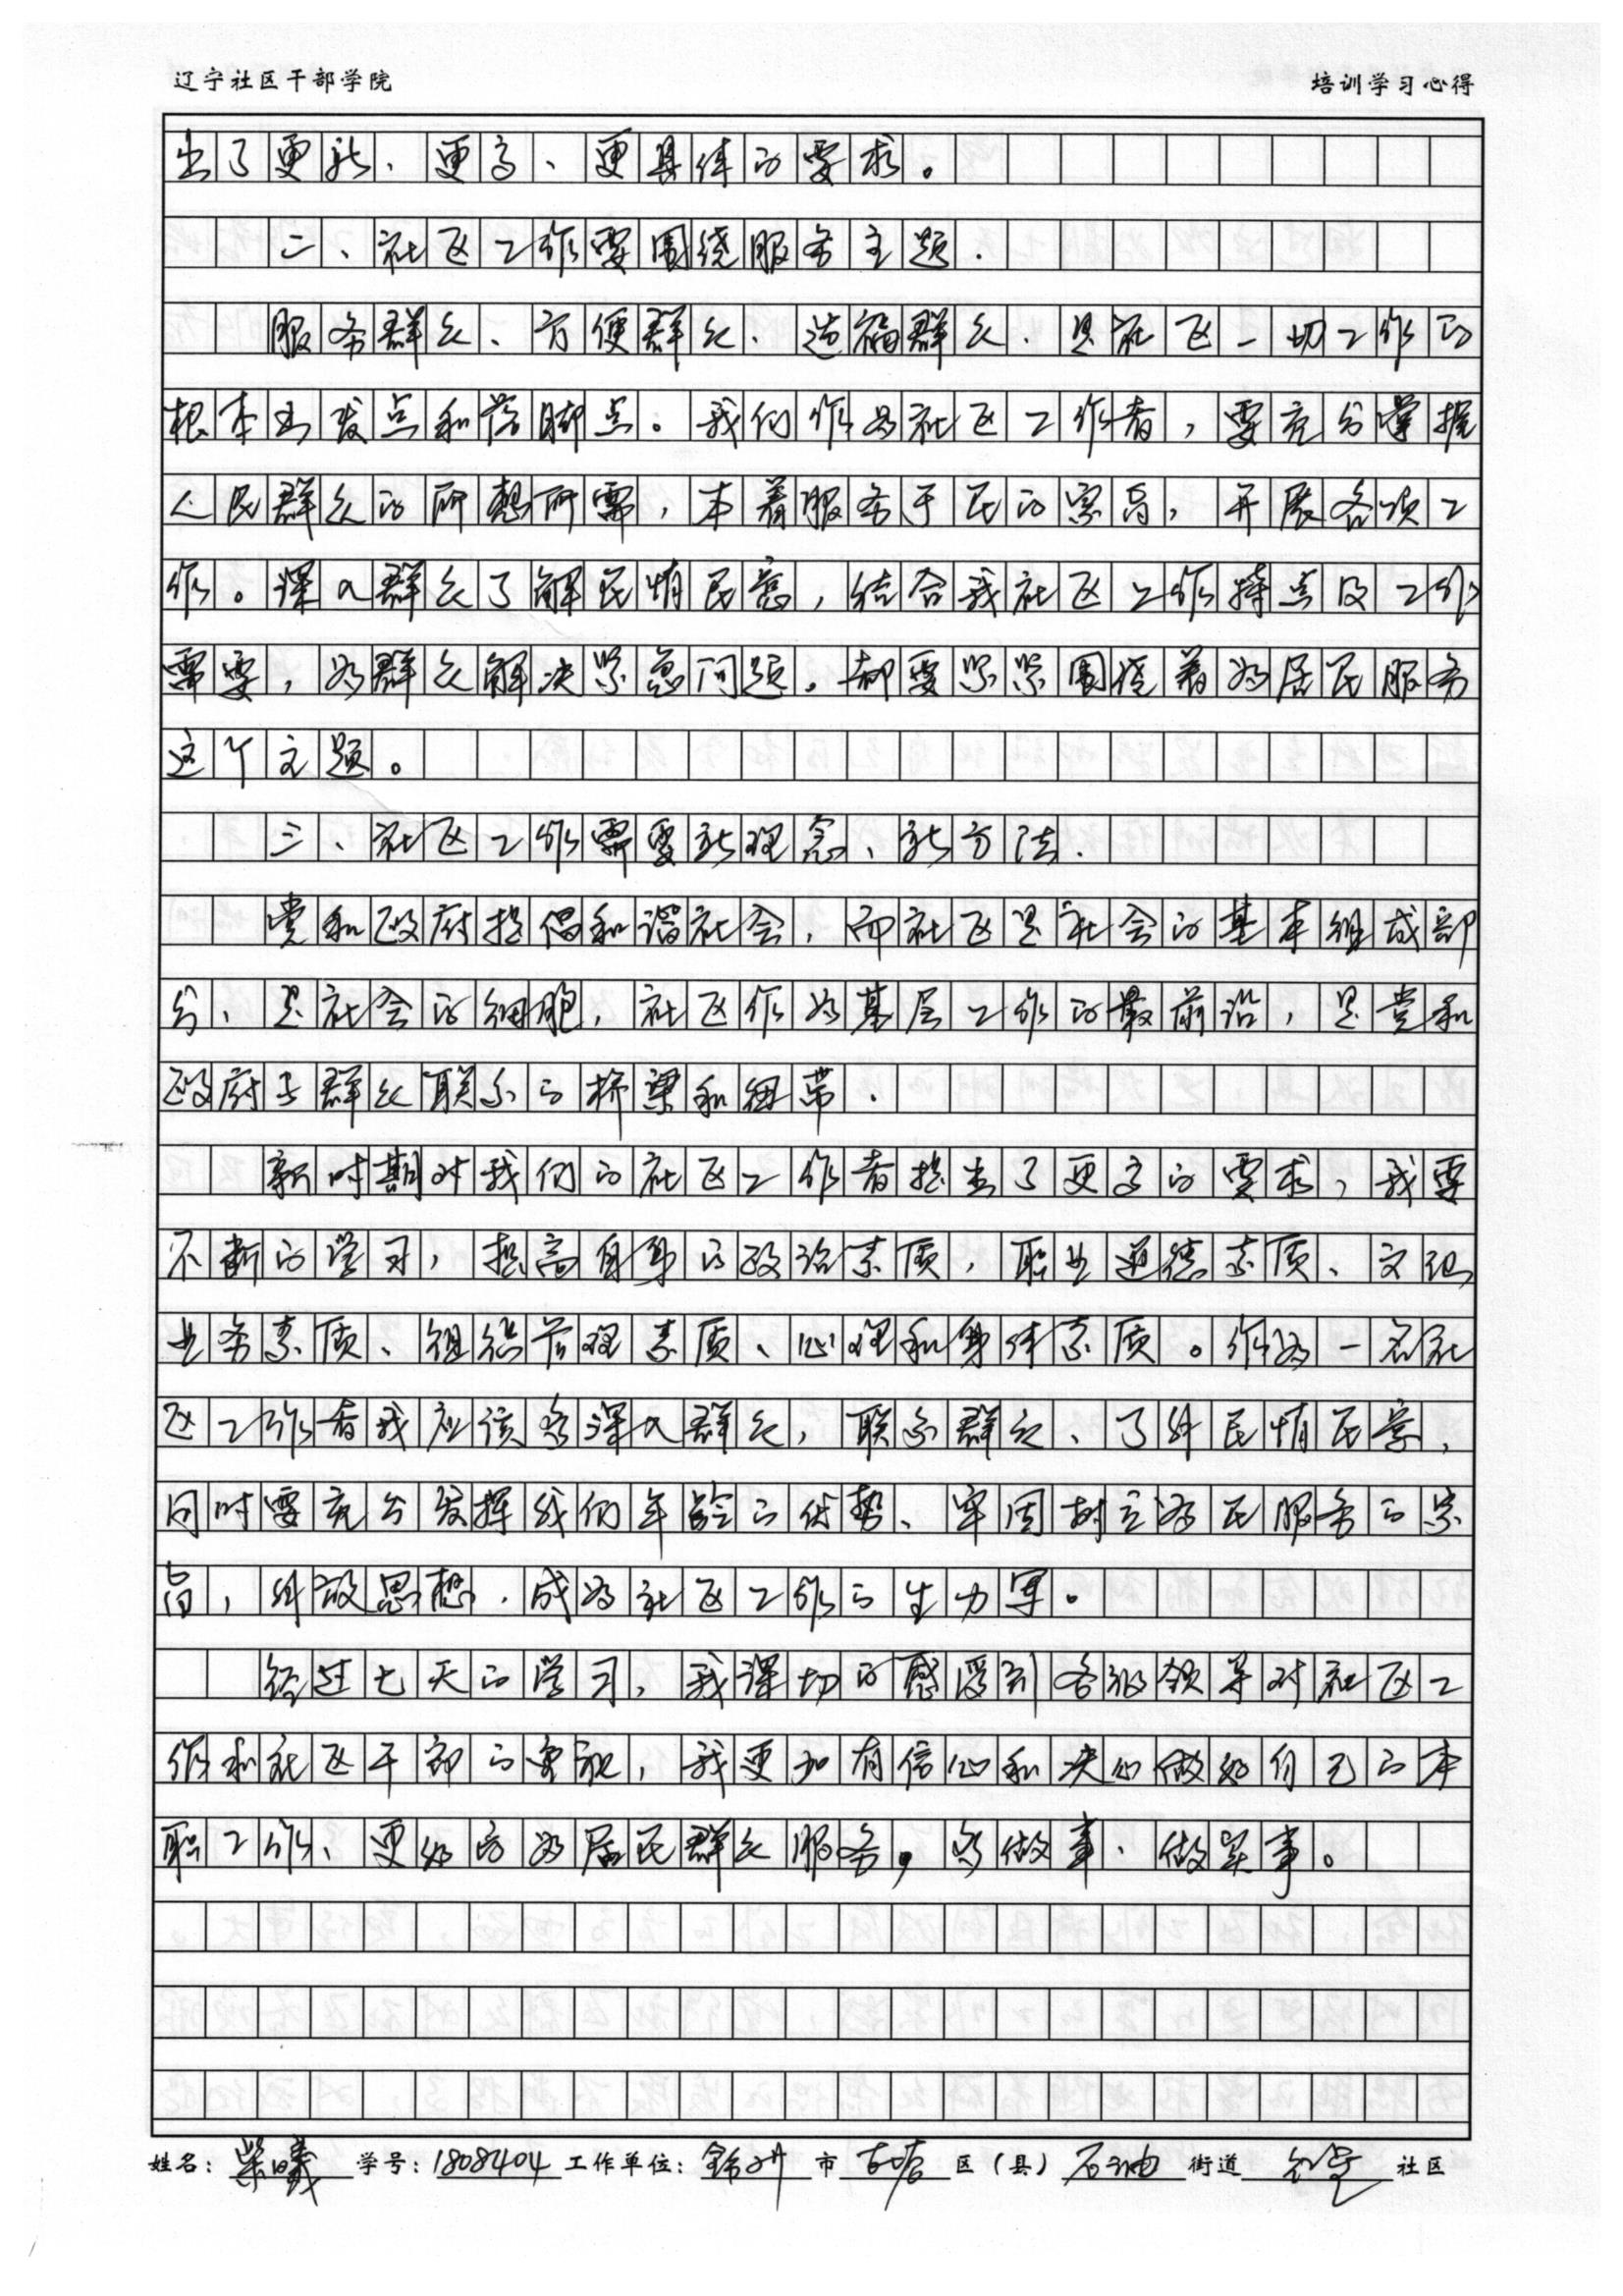 辽宁社区干部学院 培训学习心得
出了更新、更高、更具体的要求。
二、社区工作要围绕服务主题.
服务群众、方便群众、造福群众、是社区一切工作的
根本出发点和落脚点。我们作为社区工作者，要充分掌握
人民群众的所想所需，本着服务于民的宗旨，开展各项工
作。深入群众了解民情民意，结合我社区工作特点及工作
需要，为群众解决紧急问题，都要紧紧围绕着为居民服务
这个主题。
三、社区工作需要新理念、新方法.
党和政府提倡和谐社会，而社区是社会的基本组成部
分、是社会的细胞，社区作为基层工作的最前沿，是党和
政府与群众联系的桥梁和纽带.
新时期对我们的社区工作者提出了更高的要求，我要
不断的学习，提高自身的政治素质，职业道德素质、文化
业务素质、组织管理素质、心理和身体素质。作为一名社
区工作者我应该多深入群众，联系群众、了解民情民意，
同时要充分发挥我们年龄的优势、牢固树立为民服务的宗
旨，解放思想.成为社区工作的生力军。
经过七天的学习，我深切的感受到各级领导对社区工
作和社区干部的重视，我更加有信心和决心做好自己的本
职工作、更好的为居民群众服务，多做事、做实事。
姓名： 学号：1808404 工作单位： 市 古塔 区（县） 石油 街道 社区